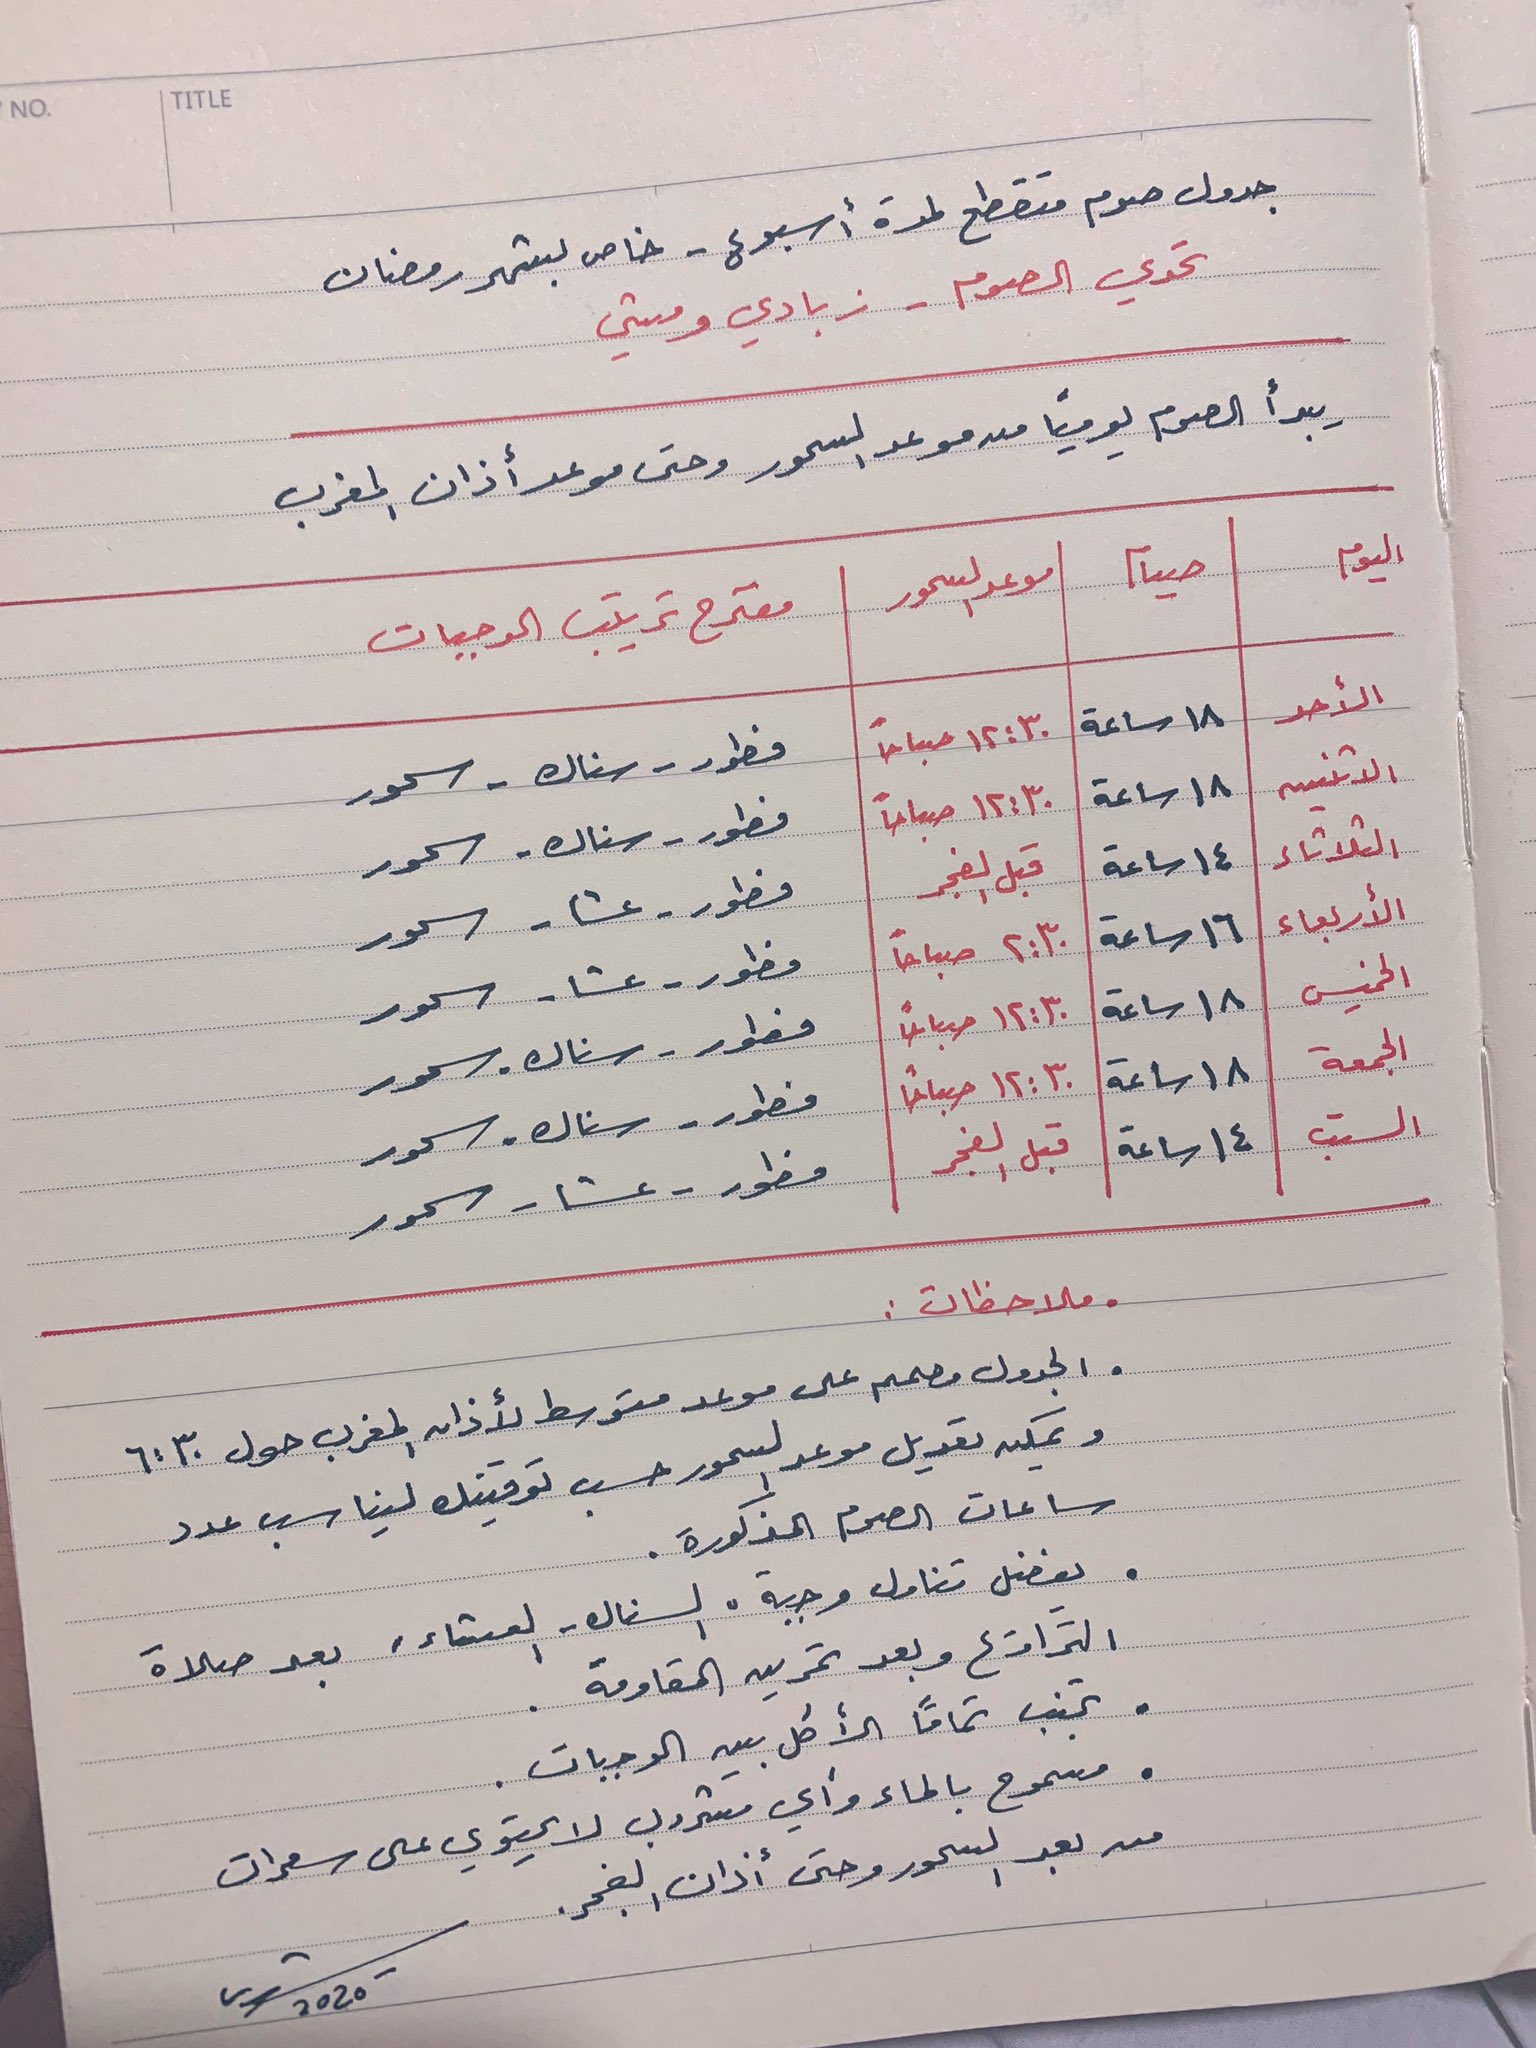 NO.
TITLE
جدول صوم متقطع لمدة أسبوع - خاص بشهر رمضان
تحدي الصوم - زبادي ومشي
يبدأ الصوم يوميًا من موعد السحور وحتى موعد أذان المغرب
اليوم صيام موعد السحور مقترح ترتيب الوجبات
الأحد ١٨ ساعة ١٢:٣٠ صباحاً فطور - سناك - سحور
الاثنين ١٨ ساعة ١٢:٣٠ صباحاً فطور - سناك - سحور
الثلاثاء ١٤ ساعة قبل الفجر فطور - عشا - سحور
الأربعاء ١٦ ساعة ٢:٣٠ صباحاً فطور - عشا - سحور
الخميس ١٨ ساعة ١٢:٣٠ صباحاً فطور - سناك - سحور
الجمعة ١٨ ساعة ١٢:٣٠ صباحاً فطور - سناك - سحور
السبت ١٤ ساعة قبل الفجر فطور - عشا - سحور
• ملاحظات :
• الجدول مصمم على موعد متوسط لأذان المغرب حول ٦:٣٠
و يمكن تعديل موعد السحور حسب توقيتك ليناسب عدد
ساعات الصوم المذكورة .
• يفضل تناول وجبة " السناك - العشاء " بعد صلاة
التراويح وبعد تمرين المقاومة .
• تجنب تمامًا الأكل بين الوجبات .
• مسموح بالماء وأي مشروب لا يحتوي على سعرات
من بعد السحور وحتى أذان الفجر .
2020